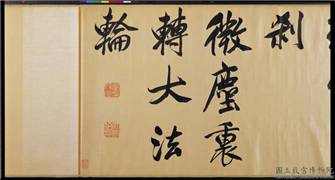 剎
微塵裏
轉大法
輪
國立故宮博物院